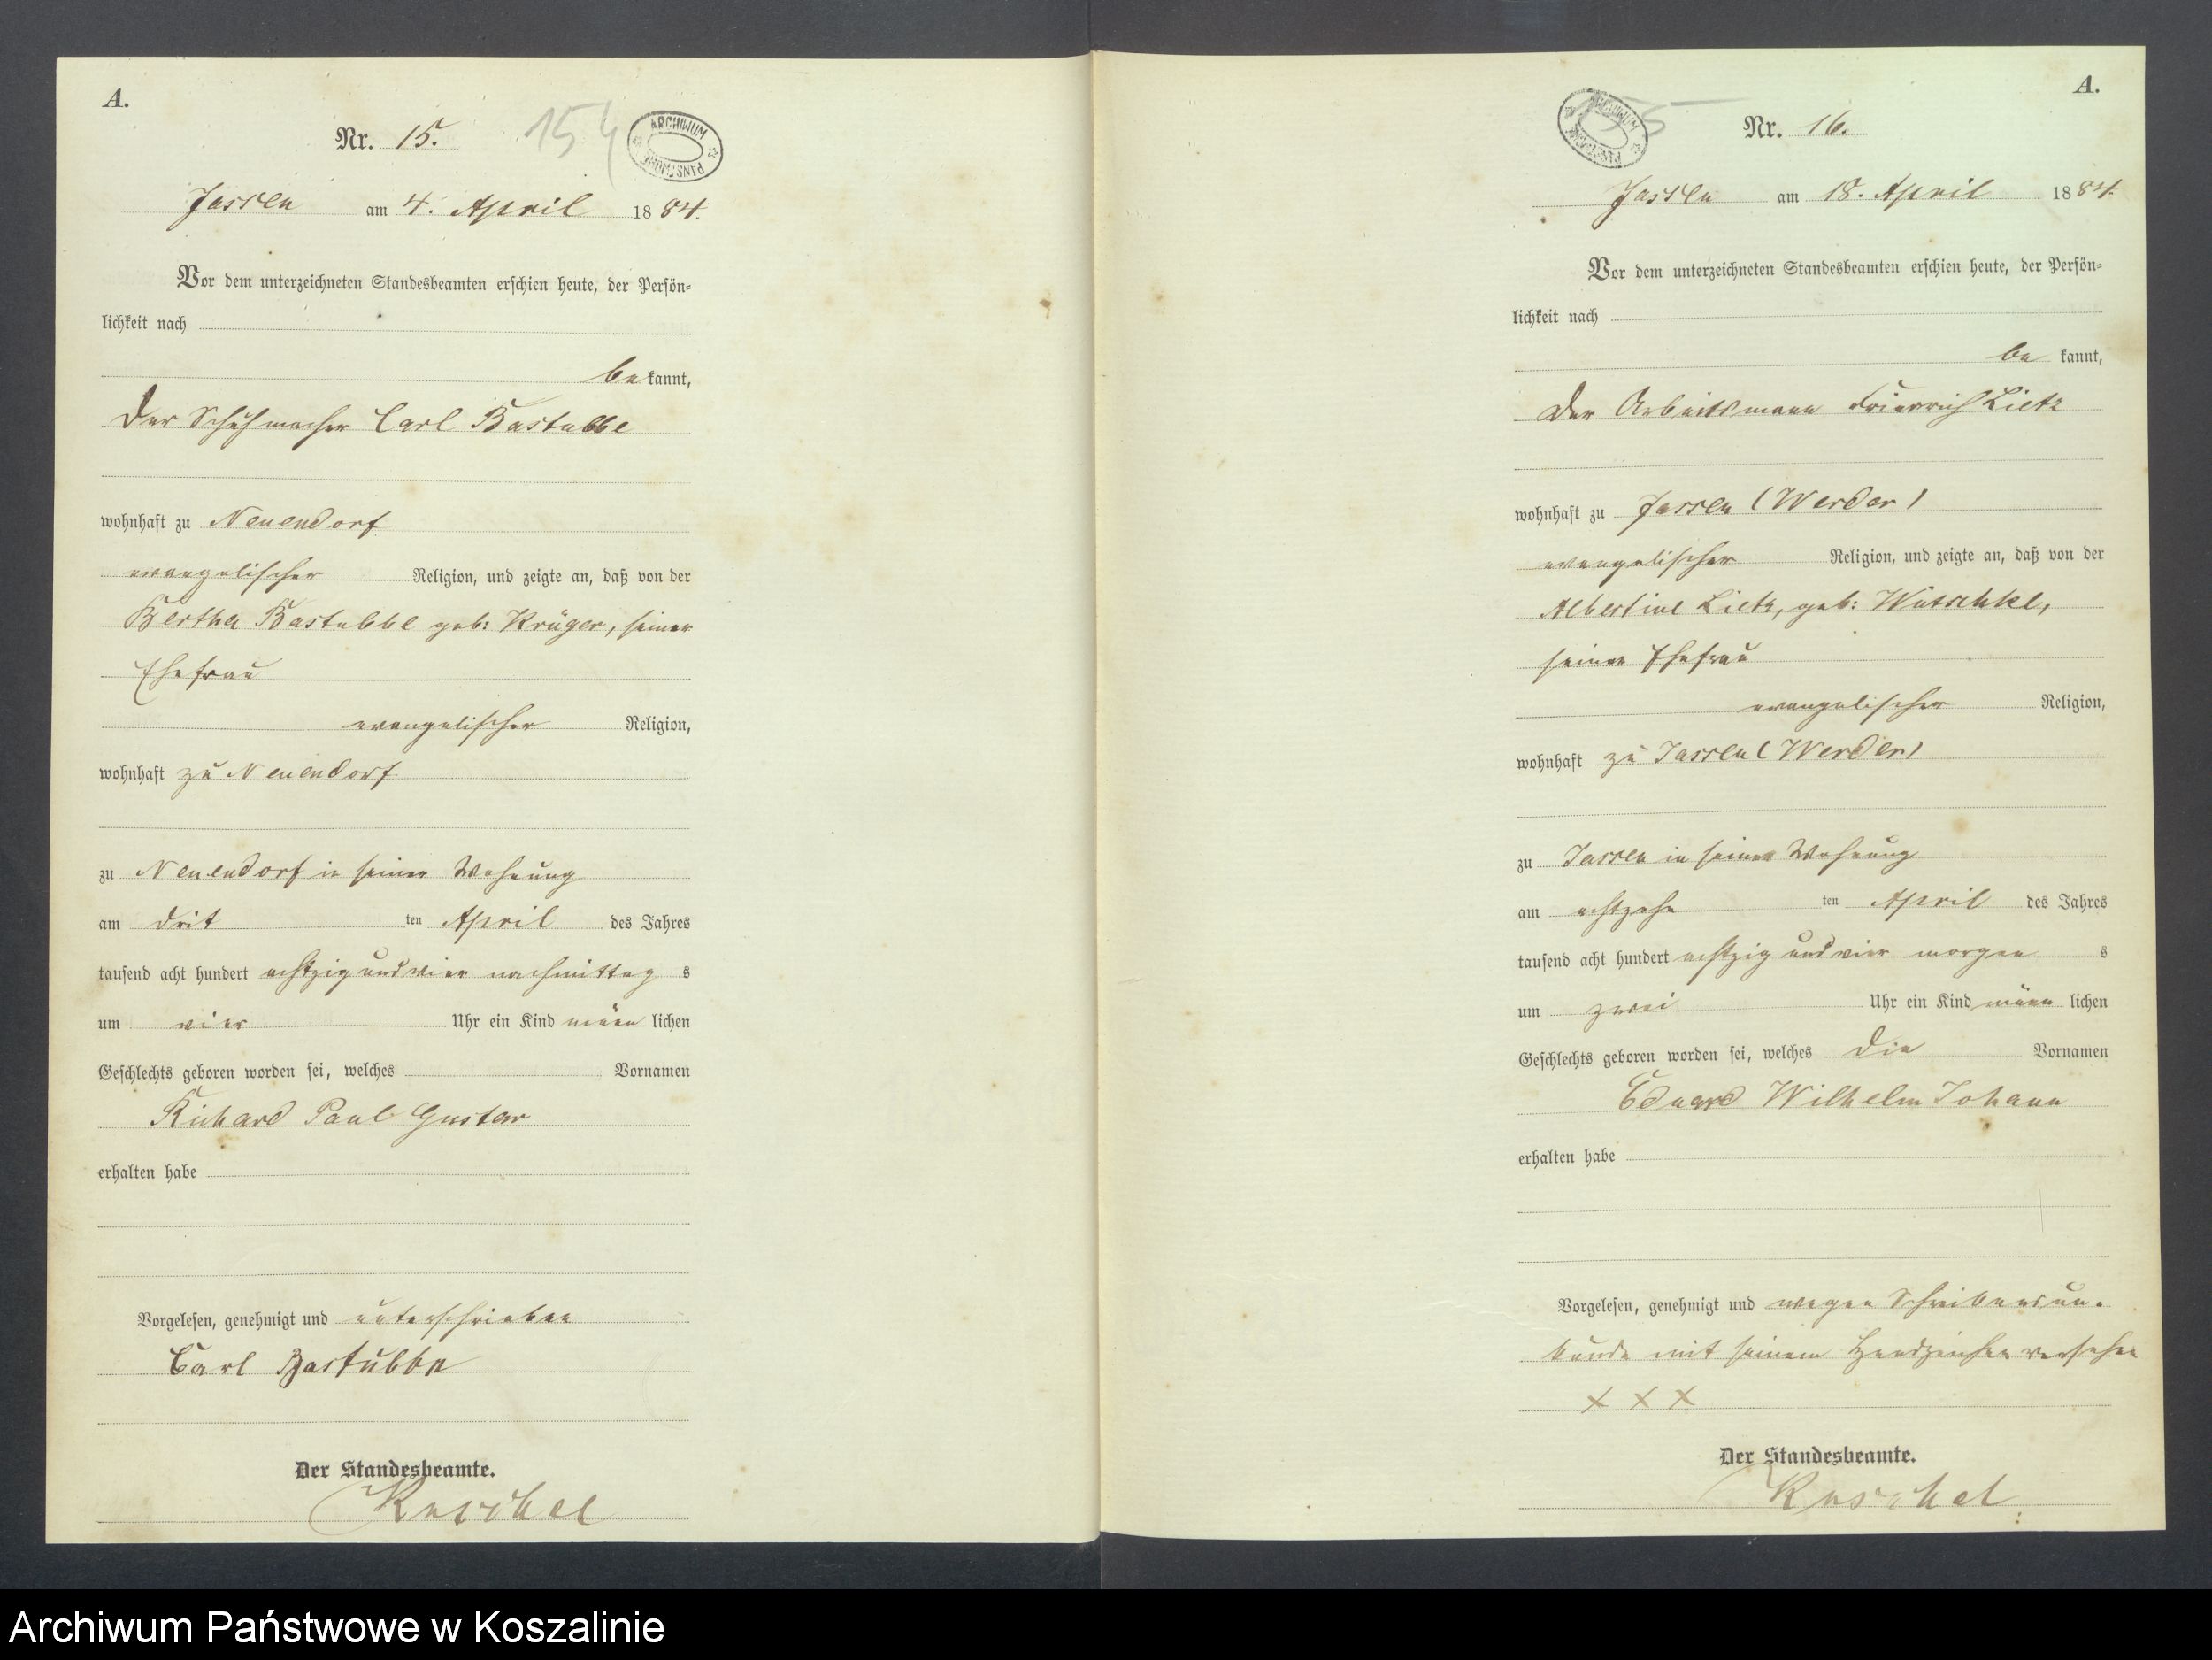 A.
Nr. 15.
154
ARCHIWUM PAŃSTWOWE
Jassen am 4. April 1884.
Vor dem unterzeichneten Standesbeamten erschien heute, der Persön-
lichkeit nach
be kannt,
der Schuhmacher Carl Bastubbe
wohnhaft zu Neuendorf
evangelischer Religion, und zeigte an, daß von der
Bertha Bastubbe geb: Krüger, seiner
Ehefrau
evangelischer Religion,
wohnhaft zu Neuendorf
zu Neuendorf in seiner Wohnung
am dritten April des Jahres
tausend acht hundert achtzig und vier nachmittags
um vier Uhr ein Kind männlichen
Geschlechts geboren worden sei, welches Vornamen
Richard Paul Gustav
erhalten habe
Vorgelesen, genehmigt und unterschrieben
Carl Bastubbe
Der Standesbeamte.
Kuschel
A.
Nr. 16.
155
ARCHIWUM PAŃSTWOWE
Jassen am 18. April 1884.
Vor dem unterzeichneten Standesbeamten erschien heute, der Persön-
lichkeit nach
be kannt,
der Arbeitsmann Friedrich Lietz
wohnhaft zu Jassen (Werder)
evangelischer Religion, und zeigte an, daß von der
Albertine Lietz, geb: Wutschke,
seiner Ehefrau
evangelischer Religion,
wohnhaft zu Jassen (Werder)
zu Jassen in seiner Wohnung
am achtzehnten April des Jahres
tausend acht hundert achtzig und vier morgens
um zwei Uhr ein Kind männlichen
Geschlechts geboren worden sei, welches die Vornamen
Eduard Wilhelm Johann
erhalten habe
Vorgelesen, genehmigt und wegen Schreibensun-
kunde mit seinem Handzeichen versehen
X X X
Der Standesbeamte.
Kuschel
Archiwum Państwowe w Koszalinie